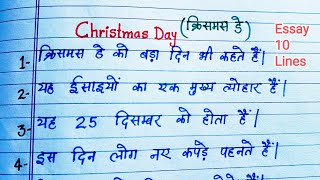 Christmas Day (क्रिसमस डे)
Essay
10
Lines
1- क्रिसमस डे को बड़ा दिन भी कहते हैं|
2- यह ईसाइयों का एक मुख्य त्योहार है|
3- यह 25 दिसम्बर को होता है|
4- इस दिन लोग नए कपड़े पहनते हैं|